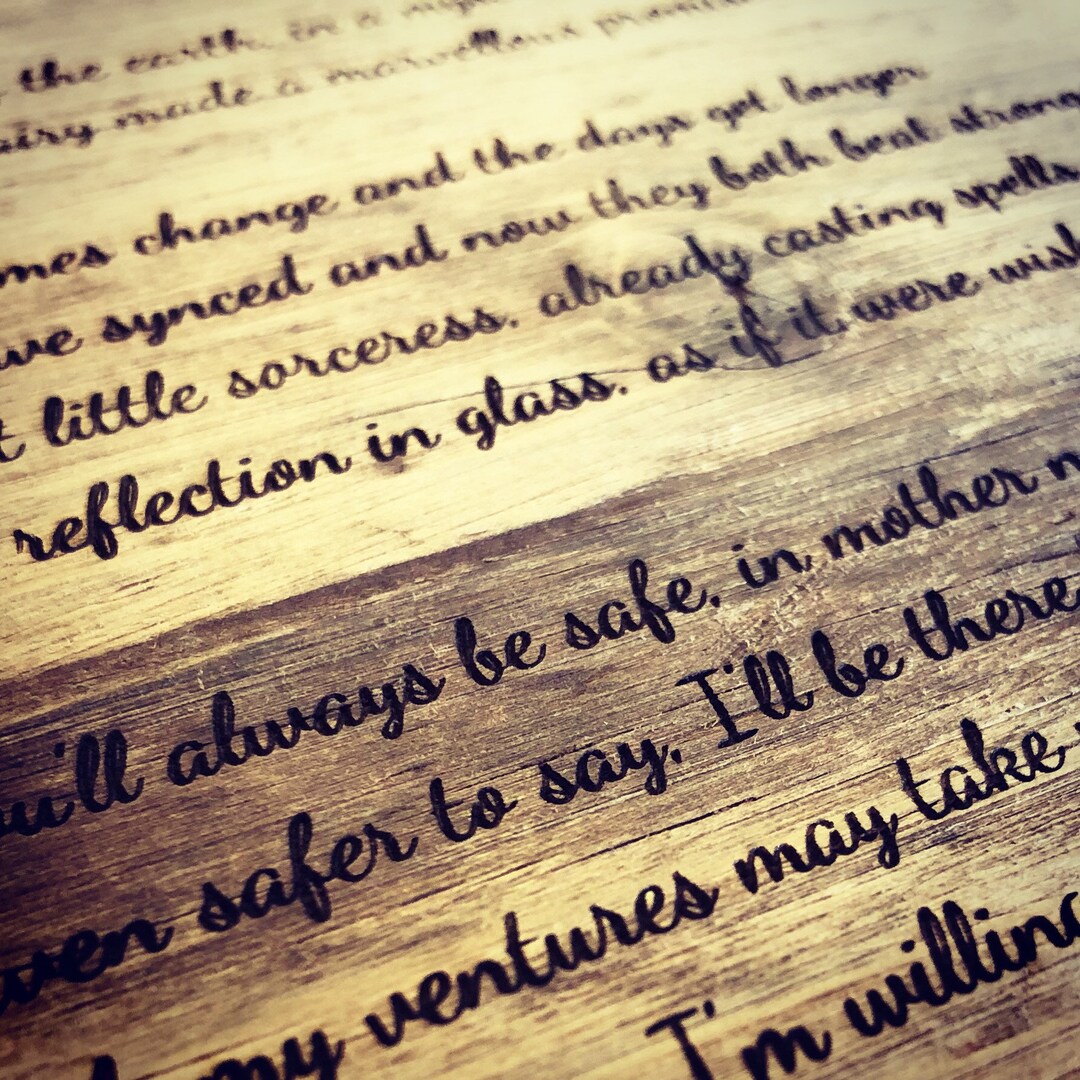 the earth, in a
airy made a marvellous
mes change and the days get longer
ve synced and now they both beat
little sorceress, already casting spells
reflection in glass, as if it were
'll always be safe, in mother
safer to say, I'll be there
my ventures may take
I'm willing